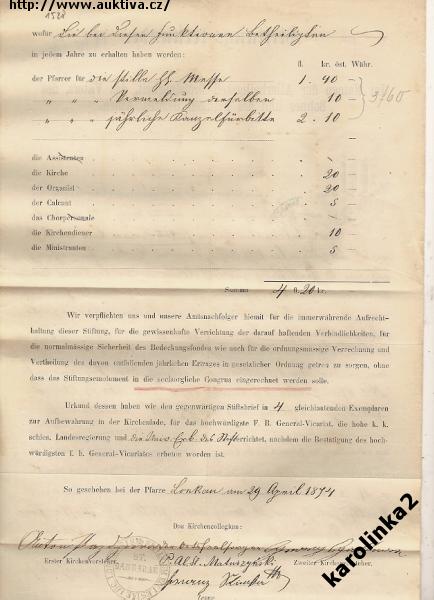 http://www.auktiva.cz/
wofür die bei diesen Funktionen Betheiligten
in jedem Jahre zu erhalten haben werden:
fl. kr. öst. Währ.
der Pfarrer für die stille hl. Messe 1 . 40 —
„ „ „ Vermeldung derselben 10 —
„ „ „ jährliche Kanzelfürbitte 2 . 10 —
3/60
die Assistenten
die Kirche 20 —
der Organist 20 —
der Calcant 5 —
das Chorpersonale
die Kirchendiener 10 —
die Ministranten 5 —
Summa 4 fl. 20 kr.
Wir verpflichten uns und unsere Amtsnachfolger hiemit für die immerwährende Aufrecht-
haltung dieser Stiftung, für die gewissenhafte Verrichtung der darauf haftenden Verbindlichkeiten, für
die normalmässige Sicherheit des Bedeckungsfondes wie auch für die ordnungsmässige Verrechnung und
Vertheilung des davon entfallenden jährlichen Ertrages in gesetzlicher Ordnung getreu zu sorgen, ohne
dass das Stiftungsemolument in die seelsorgliche Congrua eingerechnet werden solle.
Urkund dessen haben wir den gegenwärtigen Stiftsbrief in 4 gleichlautenden Exemplaren
zur Aufbewahrung in der Kirchenlade, für das hochwürdigste F. B. General-Vicariat, die hohe k. k.
schles. Landesregierung und die errichtet, nachdem die Bestätigung des hoch-
würdigsten f. b. General-Vicariates erbeten worden ist.
So geschehen bei der Pfarre Lonkau am 29 April 1874
Das Kirchencollegium:
Anton
Erster Kirchenvorsteher.
Zweiter Kirchenvorsteher.
karolinka2